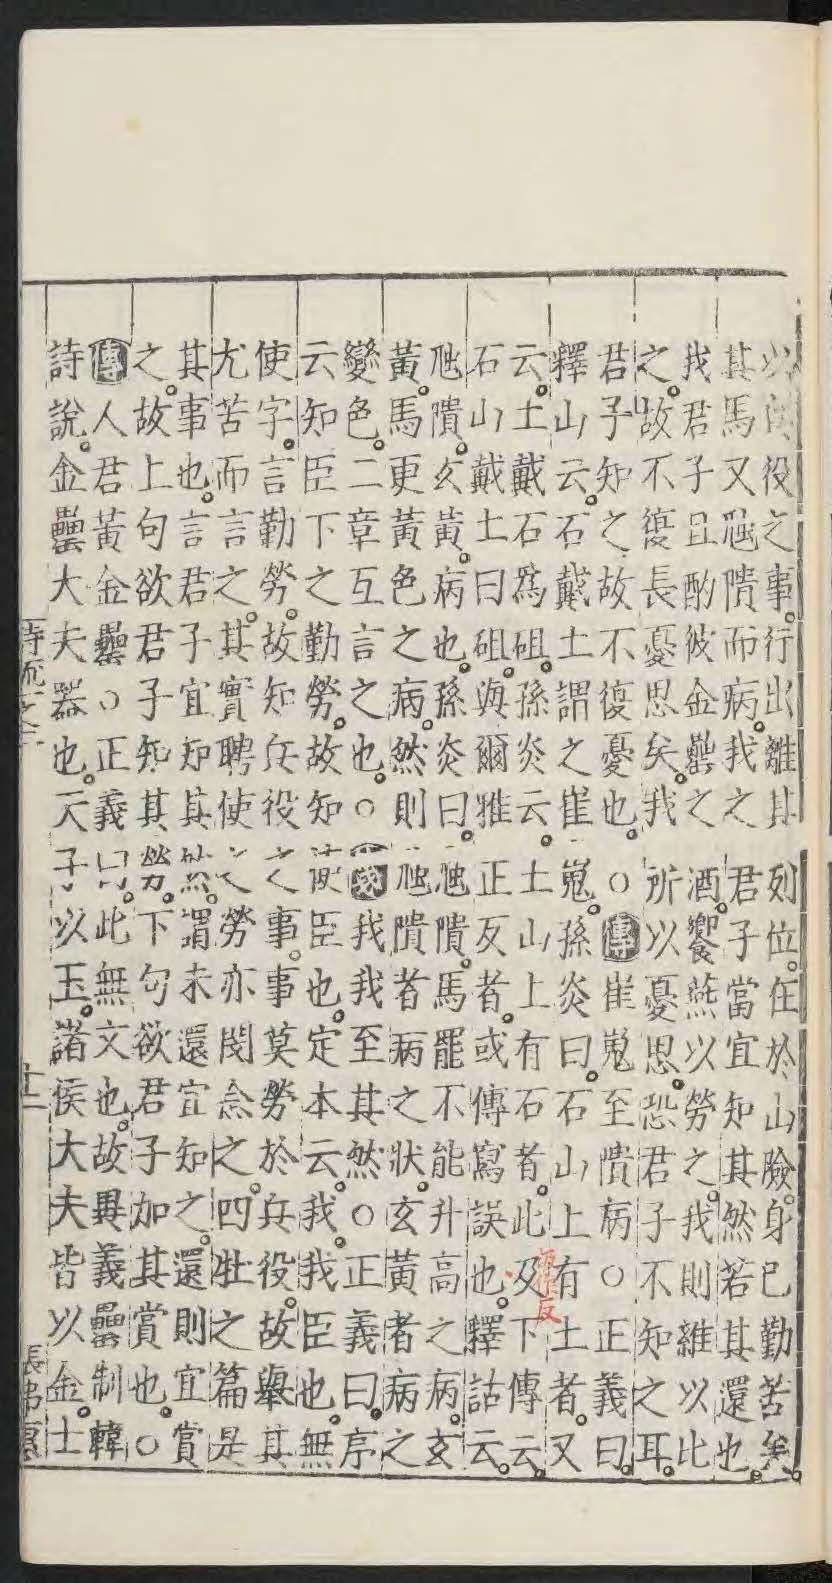 以兵役之事。行出離其列位。在於山險。身已勤苦矣。
其馬又虺隤而病。我之君子當宜知其然若其還也。
我君子且酌彼金罍之酒。饗燕以勞之。我則維以比
之。故不復長憂思矣。我所以憂思。恐君子不知之耳。
君子知之。故不復憂也。○傳崔嵬至隤病○正義曰。
釋山云。石戴土謂之崔嵬。孫炎曰。石山上有土者。又
云。土戴石爲砠。孫炎云。土山上有石者。此及下傳云。
石山戴土曰砠。與爾雅正反者。或傳寫誤也。釋詁云。
虺隤。玄黃。病也。孫炎曰。虺隤。馬罷不能升高之病。玄
黃。馬更黃色之病。然則虺隤者病之狀。玄黃者病之
變色。二章互言之也。○箋我我至其然○正義曰。序
云知臣下之勤勞。故知使臣也。定本云。我。我臣也。無
使字。言勤勞。故知兵役之事。事莫勞於兵役。故舉其
尤苦而言之。其實聘使之勞亦閔念之。四牡之篇是
其事也。言君子宜知其然。謂未還宜知之。還則宜賞
之。故上句欲君子知其勞。下句欲君子加其賞也。○
傳人君黃金罍○正義曰。此無文也。故異義罍制韓
詩說。金罍大夫器也。天子以玉。諸侯大夫皆以金。士
詩疏一之二
十二
張弗惠